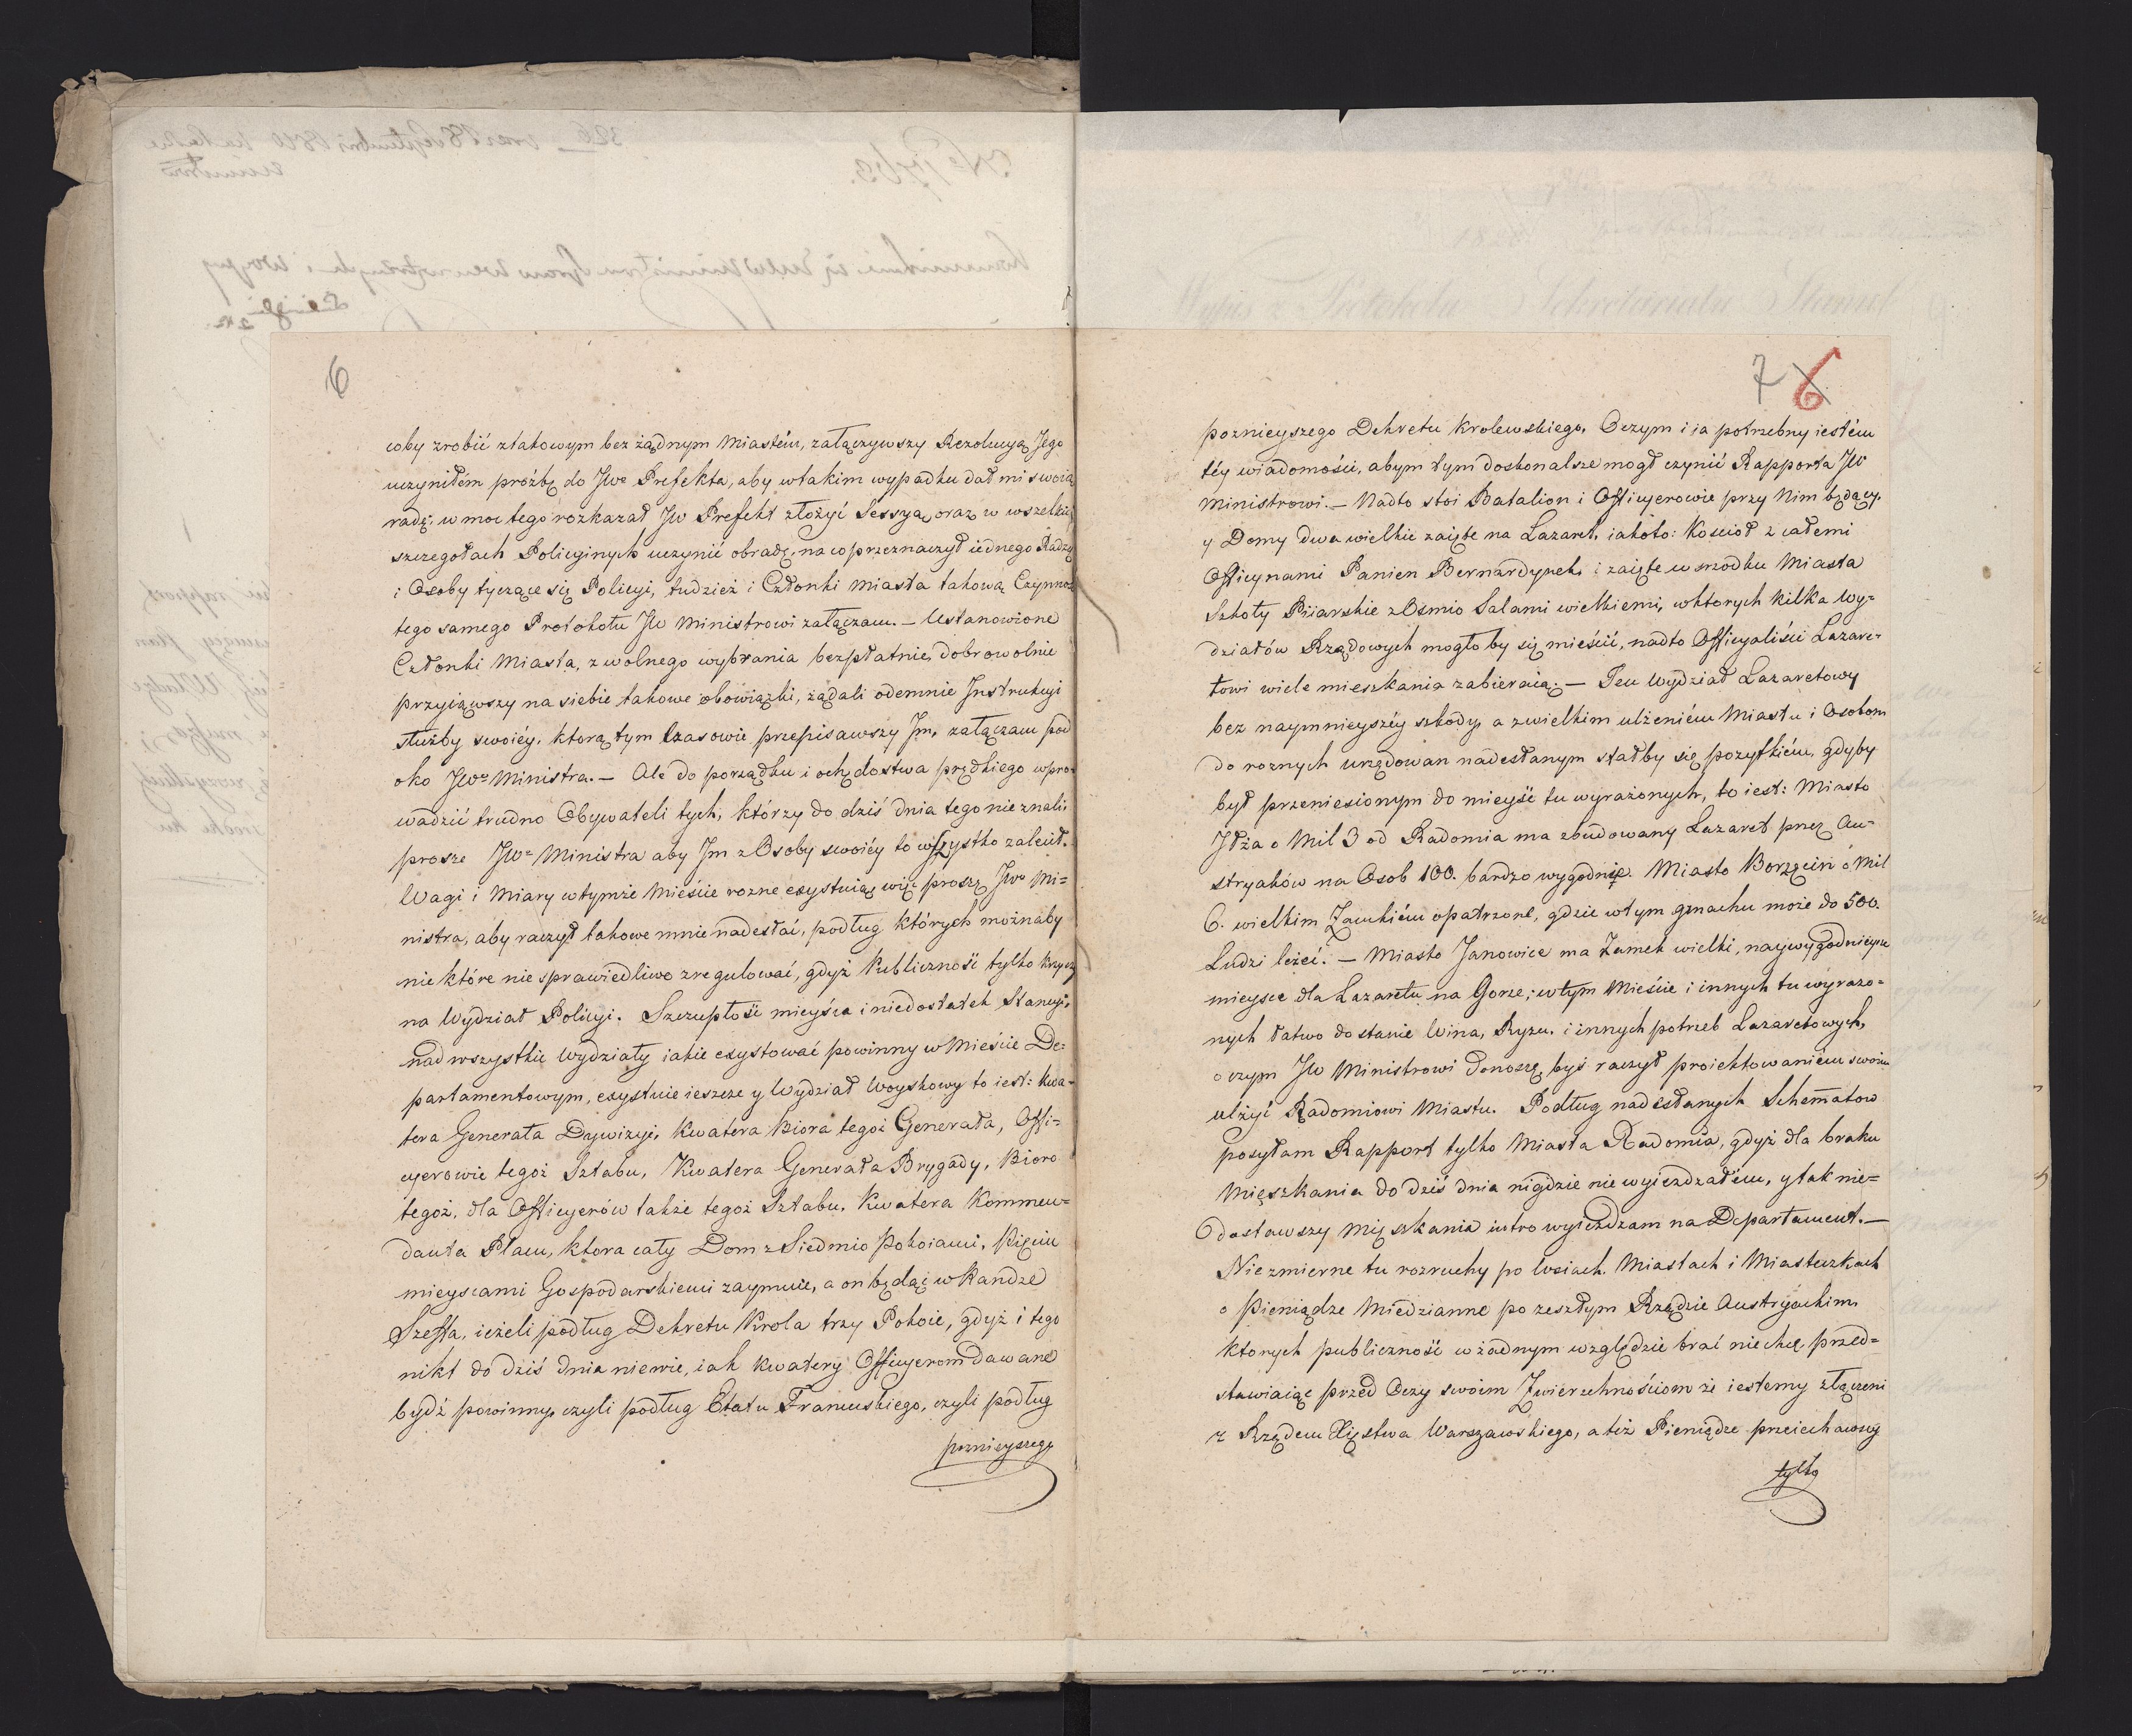 6
coby zrobić ztakowym bez żądnym Miastém, załączywszy Rezolucyą Jego
uczyniłém prośbę do JWo Prefekta, aby wtakim wypadku dał mi swoią
radę; w moc tego rozkazał JW Prefekt złożyć Sessyą, oraz w wszelkich
szczegołach Policyinych uczynić obradę, na co przeznaczył iednego Radzcę
i Osoby tyczące się Policyi, tudzież i Członki Miasta takową Czynność
tego samego Protokołu JW Ministrowi załączam. — Ustanowione
Członki Miasta, z wolnego wybrania bezpłatnie, dobrowolnie
przyiąwszy na siebie takowe obowiązki, żądali odemnie Jnstrukcyi
służby swoiéy, którą tym Czasowie przepisawszy Jm, załączam pod
oko JWo Ministra. — Ale do porządku i ochędostwa prędkiego wpro-
wadzić trudno Obywateli tych, którzy do dziś dnia tego nie znali,
prosze JWo Ministra aby Jm z Osoby swoiéy to wszystko zalecił.
Wagi i Miary wtymże Mieście rozne exystuią, więc proszę JWo Mi=
nistra, aby raczył takowe mnie nadesłać, podług których możnaby
nie które nie sprawiedliwo zregulować, gdyż Publiczność tylko krzyczy
na Wydział Policyi. Szczupłość mieysca i niedostatek Stancyi,
nad wszystkie Wydziały iakie exystować powinny w Mieście De=
partamentowym, exystuie ieszcze y Wydział Woyskowy to iest: Kwa-
tera Generała Dywizyi, Kwatera Biora tegoż Generała, Offi=
cyerowie tegoż Sztabu, Kwatera Generała Brygady, Bioro
tegoż, dla Officyerów także tegoż Sztabu, Kwatera Kommen=
danta Placu, ktora cały Dom z Siedmio Pokoiami, Pięciu
mieyscami Gospodarskiemi zaymuie, a on będąc w Randze
Szeffa, ieżeli podług Dekretu Krola trzy Pokoie, gdyż i tego
nikt do dziś dnia niewie, iak Kwatery Officyerom dawane
bydź powinny, czyli podług Etatu Francuskiego, czyli podług
poznieyszego
7 6
poznieyszego Dekretu Krolewskiego. Oczym i ia potrzebny iestém
téy wiadomości, abym tym doskonalsze mogł czynić Rapporta JW
Ministrowi. — Nadto stoi Batalion i Officyerowie przy Nim będący,
y Domy dwa wielkie zaięte na Lazaret, iakoto: Kościoł z całemi
Officynami Panien Bernardynek, i zaięte w srzodku Miasta
Szkoły Piiarskie z Osmio Salami wielkiemi, wktorych kilka Wy=
działów Rządowych mogło by się mieścić, nadto Officyaliści Lazare-
towi wiele mieszkania zabieraią. — Ten Wydział Lazaretowy
bez naymnieyszéy szkody, a z wielkim ulżeniém Miastu i Osobom
do roznych urzędowan nadesłanym stałby się pozytkiém, gdyby
był przeniesionym do mieysc tu wyrażonych, to iest: Miasto
Jłża o Mil 3 od Radomia ma zbudowany Lazaret przez Au-
stryaków na Osob 100. bardzo wygodnię. Miasto Borzęcin o Mil
6. wielkim Zamkiém opatrzone, gdzie wtym gmachu może do 500.
Ludzi leżeć. — Miasto Janowice ma Zamek wielki, naywygodnieysze
mieysce dla Lazaretu na Gorze; wtym Mieście i innych tu wyrazo=
nych łatwo dostanie Wina, Ryzu, i innych potrzeb Lazaretowych,
o czym JW Ministrowi donoszę, byś raczył proiektowaniem swoim
ulżyć Radomiowi Miastu. Podług nadesłanych Schematow
posyłam Rapport tylko Miasta Radomia, gdyż dla braku
Mięszkania do dziś dnia nigdzie nie wyiezdzałém, y tak nie=
dostawszy Mięszkania iutro wyieżdzam na Departament. —
Niezmierne tu rozruchy po Wsiach, Miastach i Miasteczkach
o Pieniądze Miedzianne po zeszłym Rządzie Austryackim
ktorych publiczność w żadnym względzie brać niechce, przed=
stawiaiąc przed Oczy swoim Zwierzchnościom że iestesmy złączeni
z Rządem Xięstwa Warszawskiego, a też Pieniądze przeiechawszy
tylko